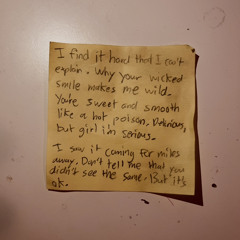 I find it hard that I can't
explain. Why your wicked
smile makes me wild.
You're sweet and smooth
like a hot poison. Delicious,
but girl im serious.
I saw it coming for miles
away. Don't tell me that you
didn't see the same. But it's
ok.